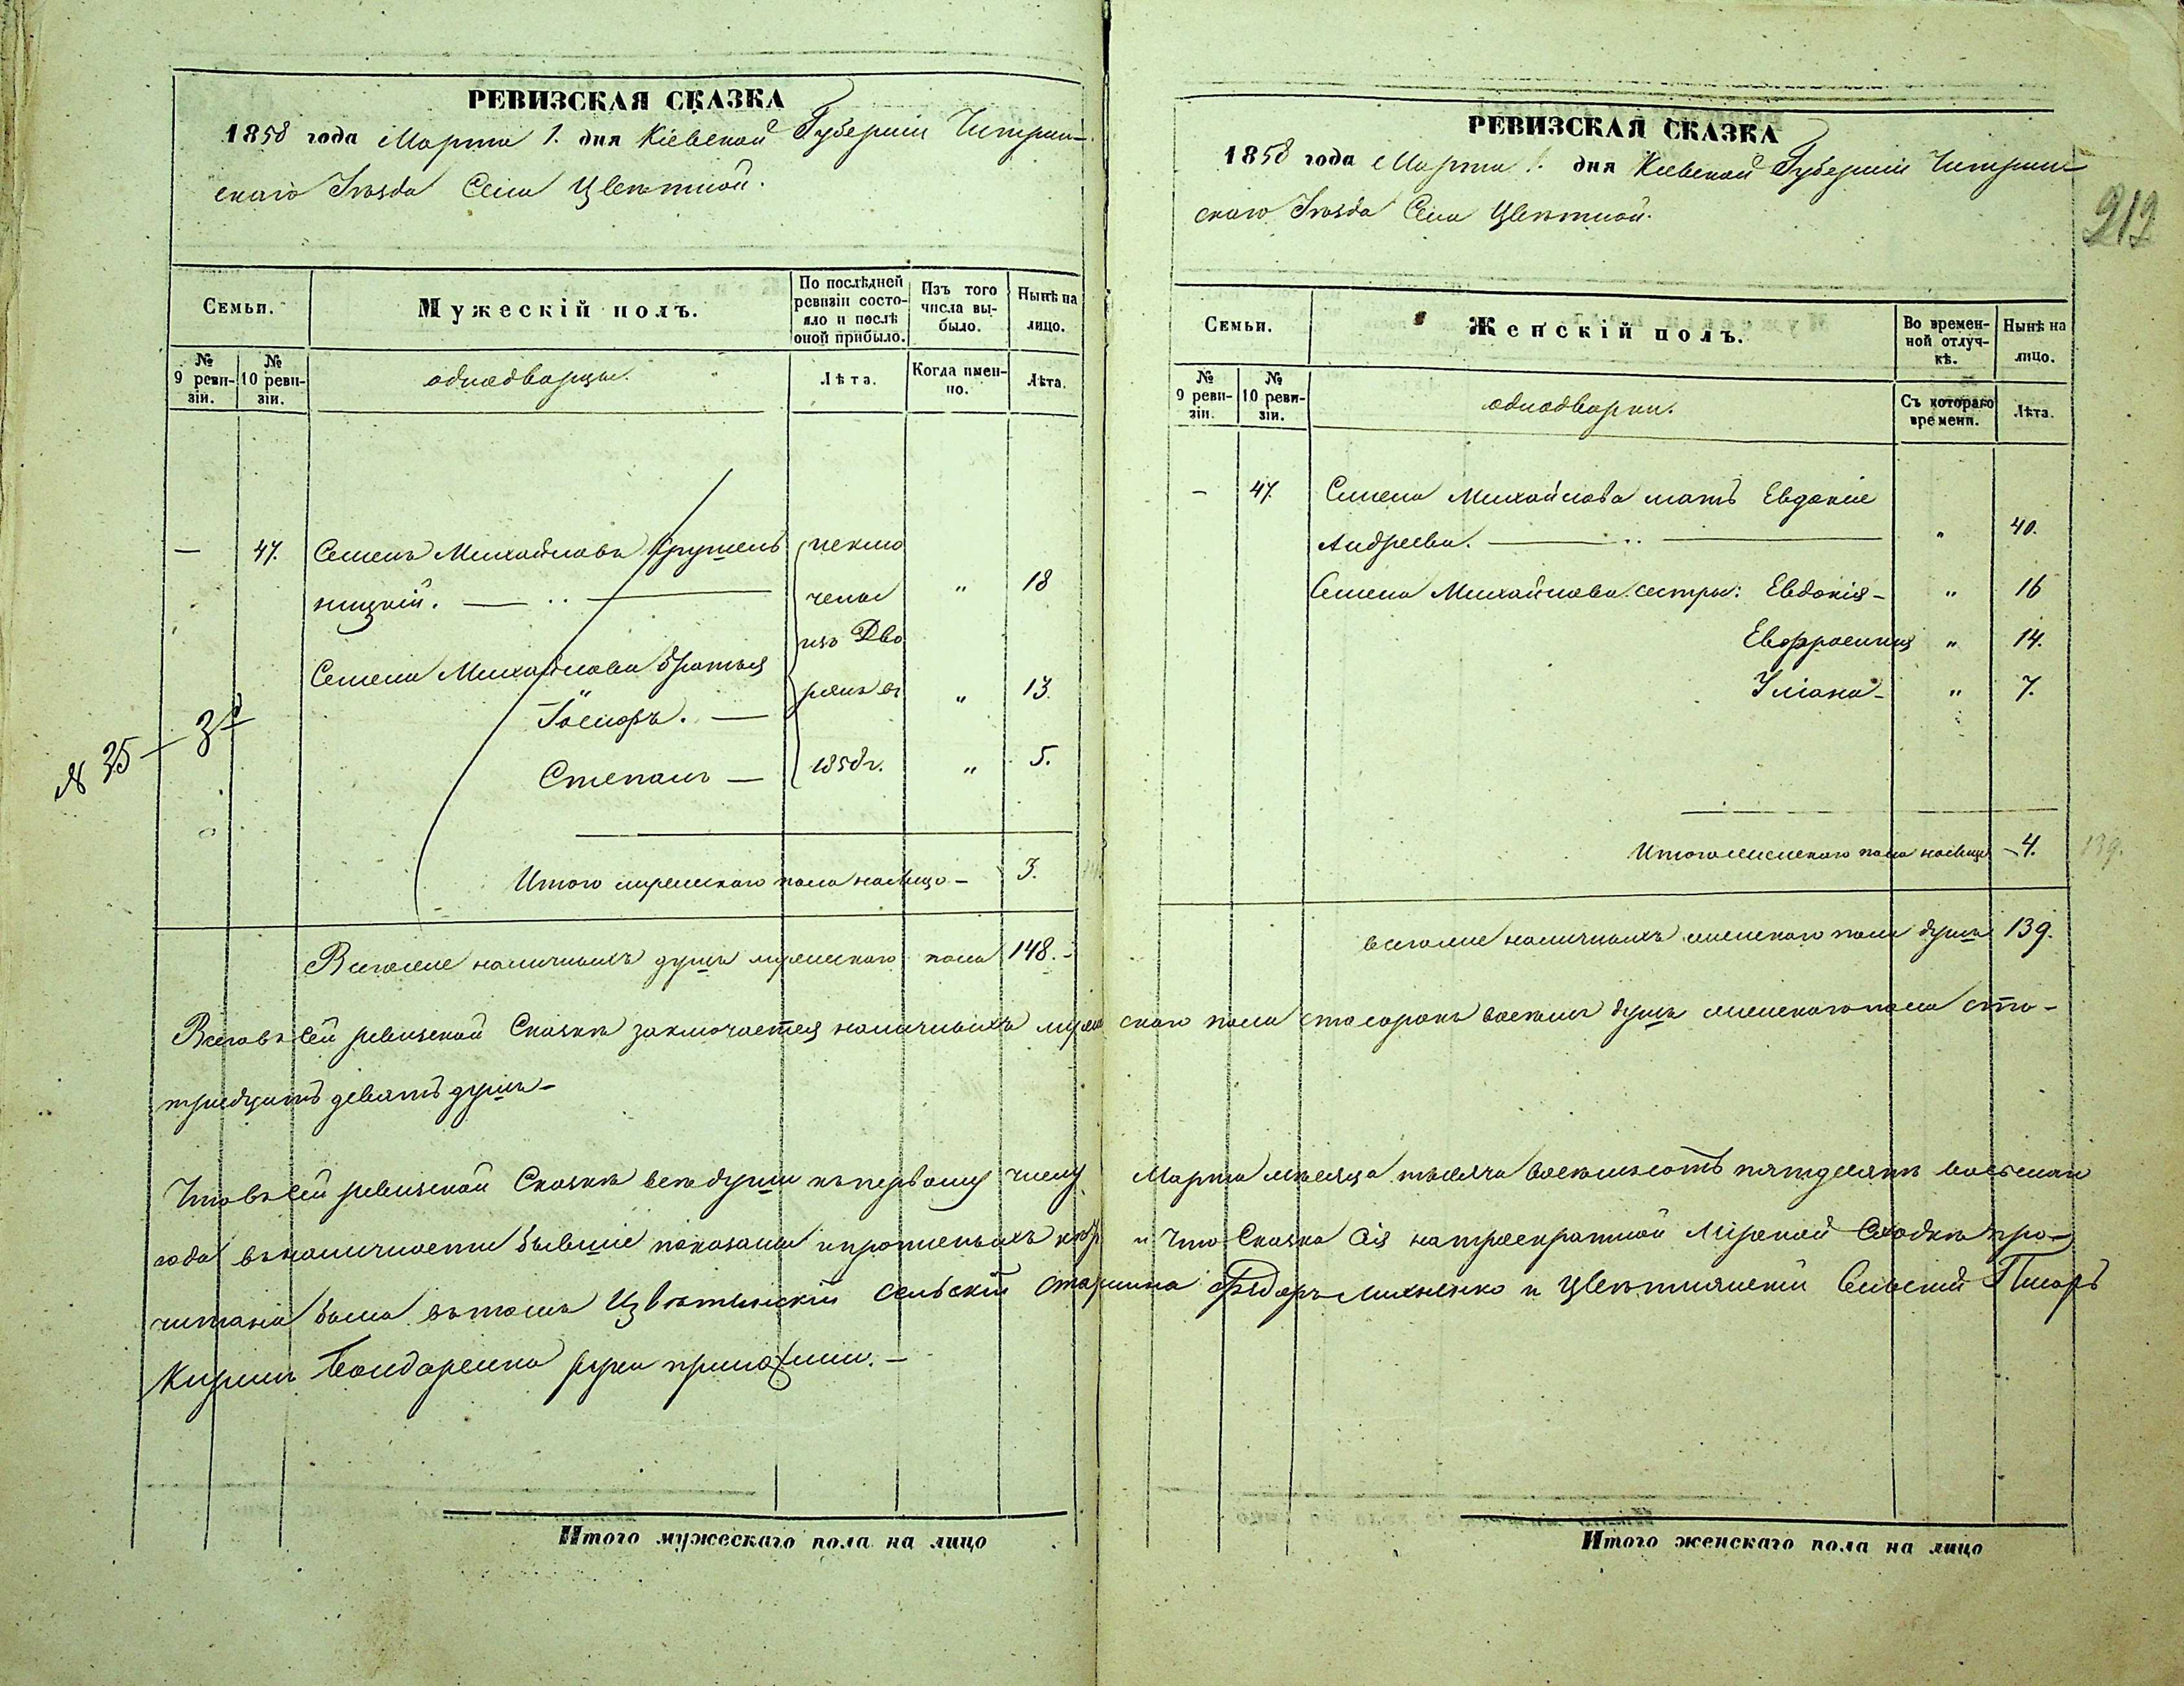 РЕВИЗСКАЯ СКАЗКА
1858 года Марта 1. дня Кіевской Губерніи Чигрин-
скаго Уѣзда Села Цвѣтной.
Семьи.
Мужескій полъ.
По послѣдней ревизіи состо-яло и послѣ оной прибыло.
Изъ того числа вы-было.
Нынѣ на лицо.
№ 9 реви-зіи.
№ 10 реви-зіи.
однодворцы.
Лѣта.
Когда имен-но.
Лѣта.
— 47. Семенъ Михайловъ Крушель
ницкій. — „ — 18
исклю
чены
изъ Дво
рянъ въ
1858 г.
Семена Михайлова братья
Іосифъ. — „ 13.
Степанъ — „ 5.
№ 35 —
Итого мужескаго пола налицо — 3.
Всего наличныхъ душъ мужескаго пола 148. -
РЕВИЗСКАЯ СКАЗКА
1858 года Марта 1. дня Кіевской Губерніи Чигрин-
скаго Уѣзда Села Цвѣтной.
212
Семьи.
Женскій полъ.
Во времен-ной отлуч-кѣ.
Нынѣ на лицо.
№ 9 реви-зіи.
№ 10 реви-зіи.
однодворки.
Съ котораго времени.
Лѣта.
— 47. Семена Михайлова мать Евдокіе
Андреева. — „ 40.
Семена Михайлова сестры: Евдокія - „ 16
Евфросинія „ 14.
Уліана - „ 7.
Итого женскаго пола налицо - 4. 139.
всего наличныхъ женскаго пола душъ 139.
Всего въ сей ревизской Сказкѣ заключается наличныхъ мужескаго пола сто сорокъ восемь душъ женскаго пола сто-
тридцать девять душъ -
Что въ сей ревизской Сказкѣ всѣ души къ первому числу Марта мѣсяца тысяча восемьсотъ пятдесятъ восьмаго
года въ наличности бывшіе показаны и что Сказка сія на троекратной Мірской Сходкѣ про-
читана была въ томъ Цвѣтянскій сельскій старшина Федоръ и Цвѣтнянскій Сельскій Писарь
Кирилъ Бондаренко руки приложили. -
Итого мужескаго пола на лицо
Итого женскаго пола на лицо